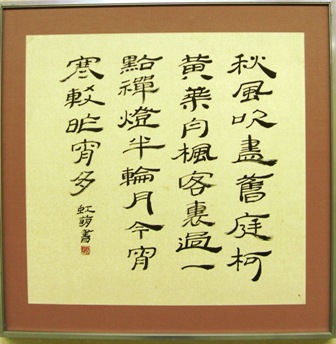 秋風吹盡舊庭柯
黃葉丹楓客裏過一
點禪燈半輪月今宵
寒較昨宵多
虹 書